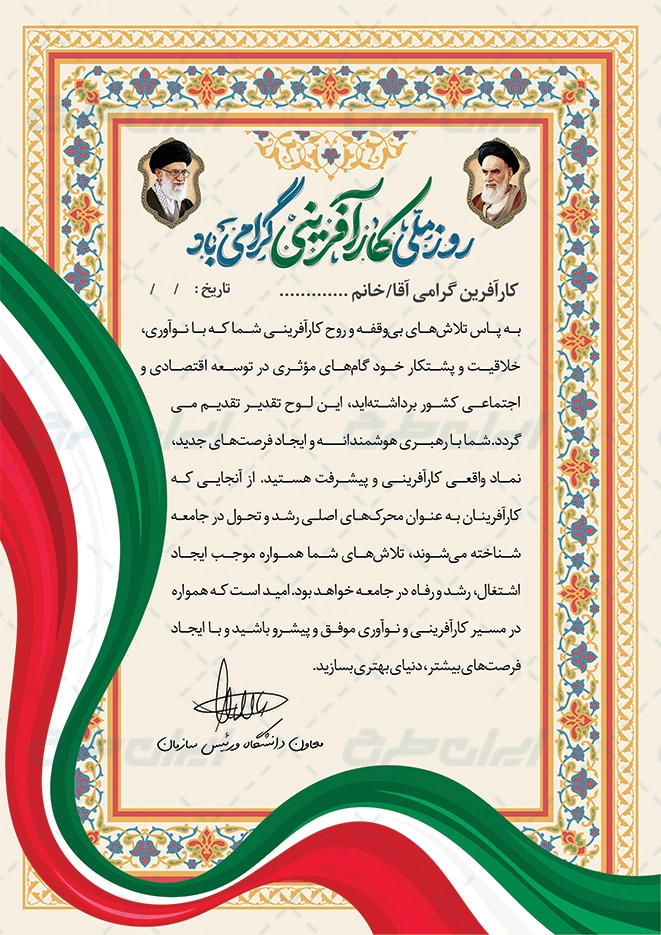 روز ملی کارآفرینی گرامی باد
کارآفرین گرامی آقا/خانم ............. تاریخ : / /
به پاس تلاش‌های بی‌وقفه و روح کارآفرینی شما که با نوآوری،
خلاقیت و پشتکار خود گام‌های مؤثری در توسعه اقتصادی و
اجتماعی کشور برداشته‌اید، این لوح تقدیر تقدیم می
گردد.شما با رهبری هوشمندانه و ایجاد فرصت‌های جدید،
نماد واقعی کارآفرینی و پیشرفت هستید. از آنجایی که
کارآفرینان به عنوان محرک‌های اصلی رشد و تحول در جامعه
شناخته می‌شوند، تلاش‌های شما همواره موجب ایجاد
اشتغال، رشد و رفاه در جامعه خواهد بود. امید است که همواره
در مسیر کارآفرینی و نوآوری موفق و پیشرو باشید و با ایجاد
فرصت‌های بیشتر، دنیای بهتری بسازید.
معاون دانشگاه و رئیس سازمان
ایران طرح